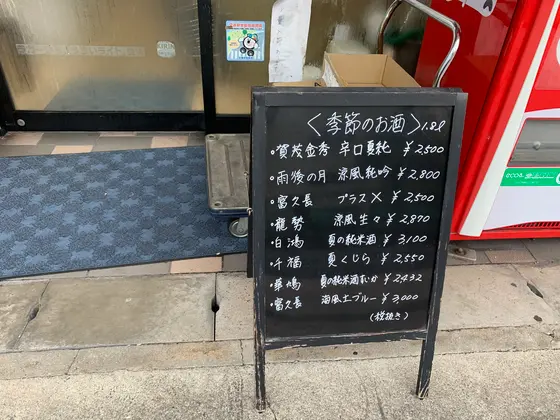 〈季節のお酒〉1.8ℓ
・賀茂金秀 辛口夏純 ¥2,500
・雨後の月 涼風純吟 ¥2,800
・富久長 プラスX ¥2,500
・龍勢 涼風生々 ¥2,870
・白鴻 夏の純米酒 ¥3,100
・千福 夏くじら ¥2,550
・華鳩 夏の純米酒すいか ¥2,432
・富久長 海風土ブルー ¥3,000
(税抜き)